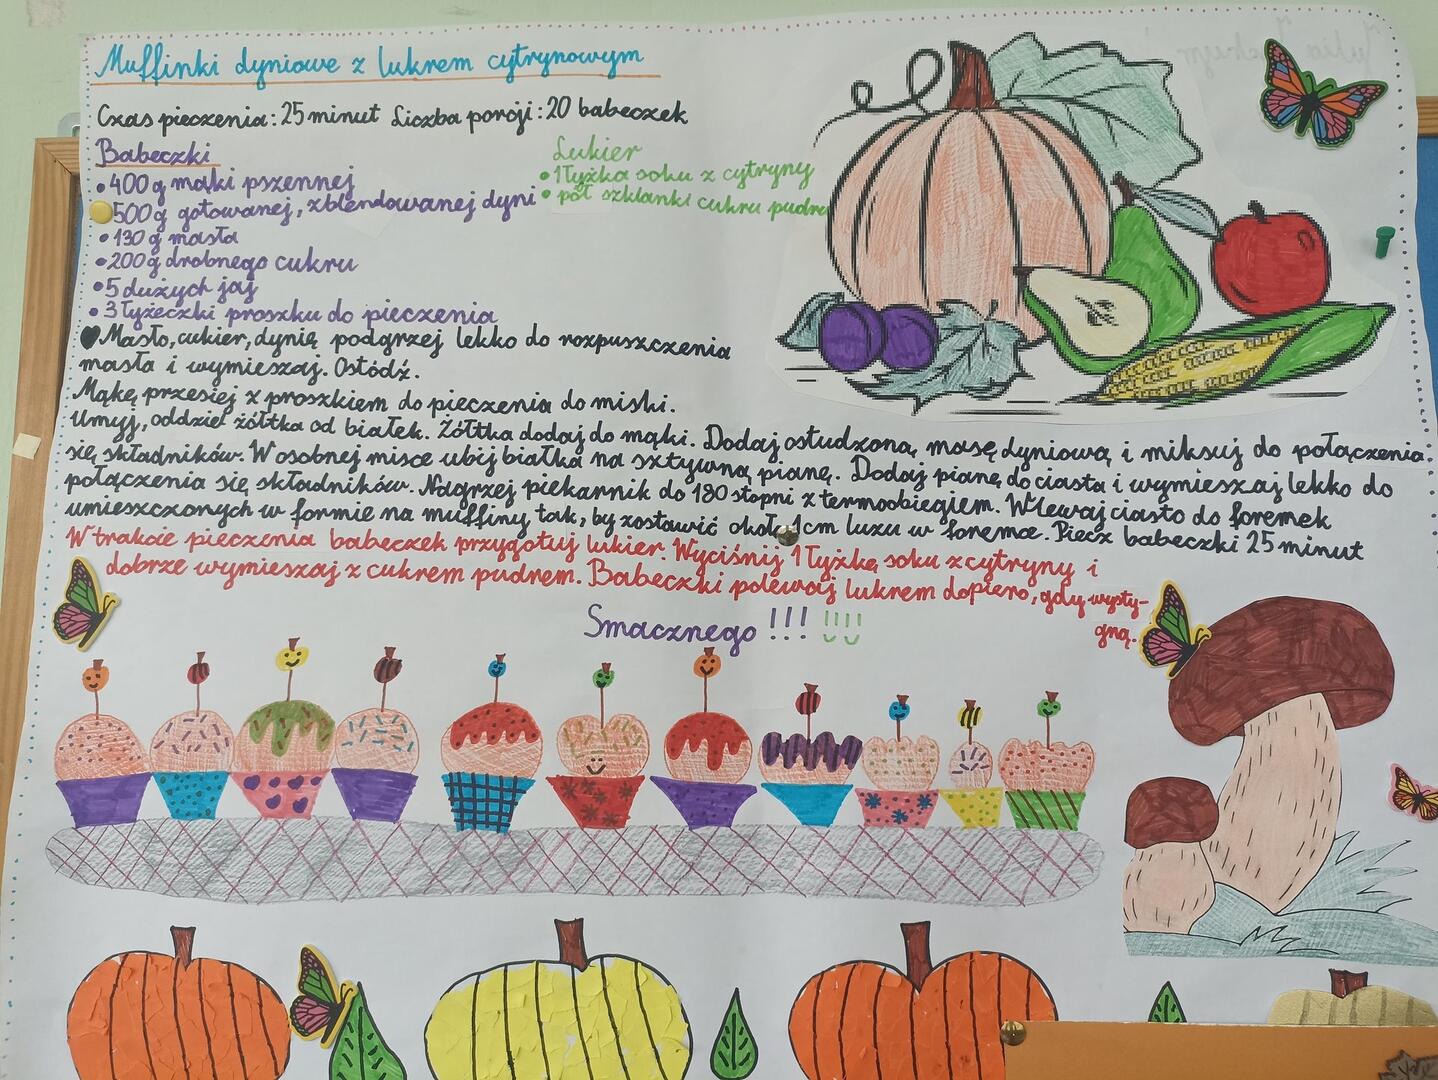 Muffinki dyniowe z lukrem cytrynowym
Czas pieczenia: 25 minut Liczba porcji: 20 babeczek
Babeczki
• 400 g mąki pszennej
500 g gotowanej, zblendowanej dyni
• 130 g masła
• 200 g drobnego cukru
• 5 dużych jaj
• 3 łyżeczki proszku do pieczenia
Lukier
• 1 łyżka soku z cytryny
• pół szklanki cukru pudru
Masło, cukier, dynię podgrzej lekko do rozpuszczenia
masła i wymieszaj. Ostódź.
Mąkę przesiej z proszkiem do pieczenia do miski.
Umyj, oddziel żółtka od białek. Żółtka dodaj do mąki. Dodaj ostudzoną masę dyniową i miksuj do połączenia
się składników. W osobnej misce ubij białka na sztywną pianę. Dodaj pianę do ciasta i wymieszaj lekko do
połączenia się składników. Nagrzej piekarnik do 180 stopni z termoobiegiem. Wlewaj ciasto do foremek
umieszczonych w formie na muffiny tak, by zostawić około 1cm luzu w foremce. Piecz babeczki 25 minut
W trakcie pieczenia babeczek przygotuj lukier. Wyciśnij 1 łyżkę soku z cytryny i
dobrze wymieszaj z cukrem pudrem. Babeczki polewaj lukrem dopiero, gdy wysty-
gną.
Smacznego !!!